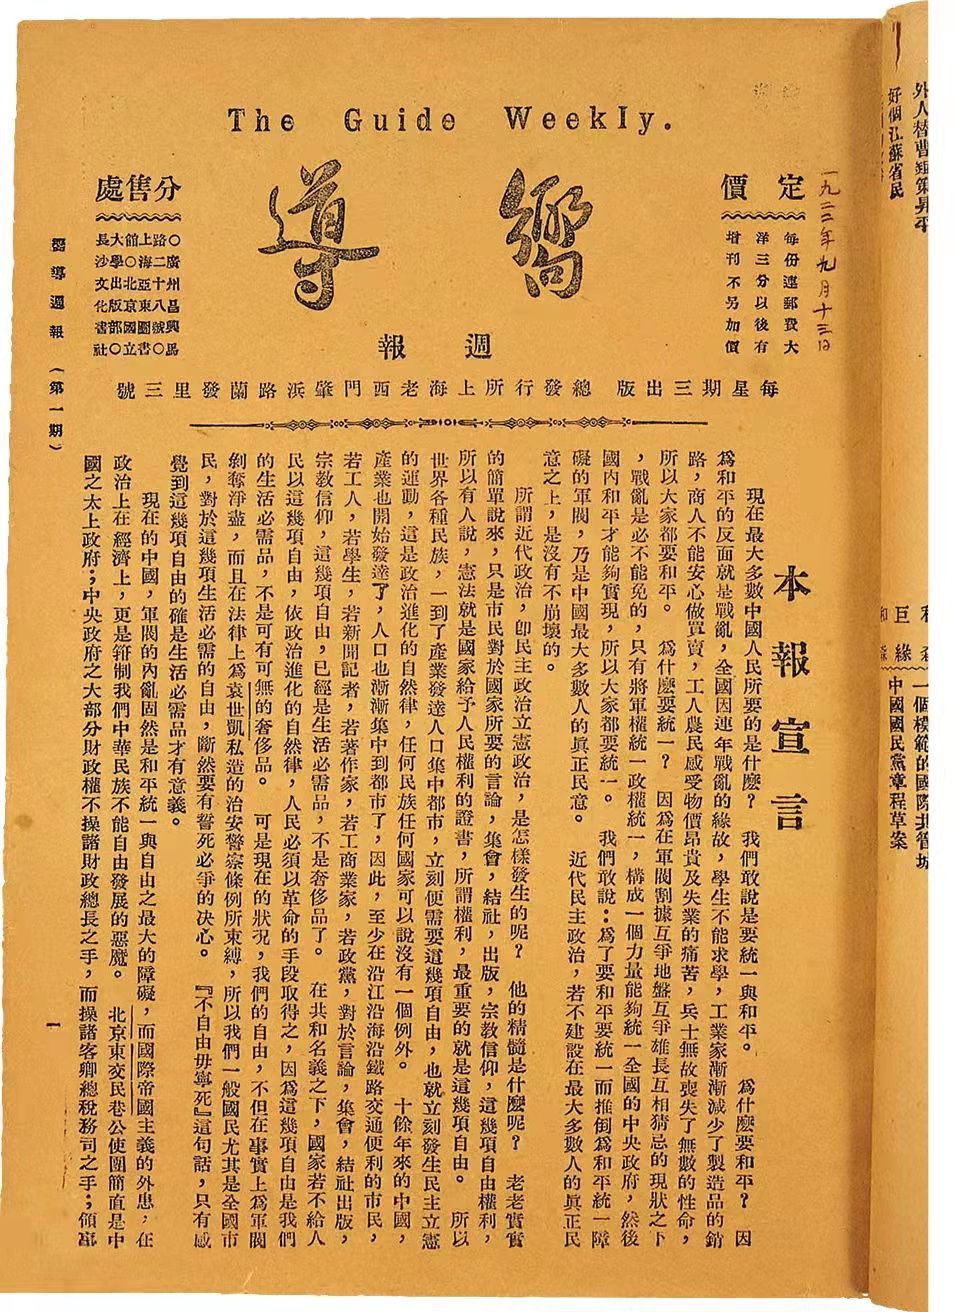 The Guide Weekly.
嚮導
週報
定價
每份連郵費大
洋三分以後有
增刊不另加價
一九二二年九月十三日
分售處
○廣州昌興馬
路二十八號○
上海亞東圖書
館○北京國立
大學出版部○
長沙文化書社
每星期三出版 總發行所上海老西門肇浜路蘭發里三號
本報宣言
現在最大多數中國人民所要的是什麽?我們敢說是要統一與和平。爲什麽要和平?因
爲和平的反面就是戰亂,全國因連年戰亂的緣故,學生不能求學,工業家漸漸減少了製造品的銷
路,商人不能安心做買賣,工人農民感受物價昂貴及失業的痛苦,兵士無故喪失了無數的性命,
所以大家都要和平。爲什麽要統一?因爲在軍閥割據互爭地盤互爭雄長互相猜忌的現狀之下
,戰亂是必不能免的,只有將軍權統一政權統一,構成一個力量能夠統一全國的中央政府,然後
國內和平才能夠實現,所以大家都要統一。我們敢說:爲了要和平要統一而推倒爲和平統一障
礙的軍閥,乃是中國最大多數人的眞正民意。近代民主政治,若不建設在最大多數人的眞正民
意之上,是沒有不崩壞的。
所謂近代政治,卽民主政治立憲政治,是怎樣發生的呢?他的精髓是什麽呢?老老實實
的簡單說來,只是市民對於國家所要的言論,集會,結社,出版,宗教信仰,這幾項自由權利,
所以有人說,憲法就是國家給予人民權利的證書,所謂權利,最重要的就是這幾項自由。所以
世界各種民族,一到了產業發達人口集中都市,立刻便需要這幾項自由,也就立刻發生民主立憲
的運動,這是政治進化的自然律,任何民族任何國家可以說沒有一個例外。十餘年來的中國,
產業也開始發達了,人口也漸漸集中到都市了,因此,至少在沿江沿海沿鐵路交通便利的市民,
若工人,若學生,若新聞記者,若著作家,若工商業家,若政黨,對於言論,集會,結社出版,
宗教信仰,這幾項自由,已經是生活必需品,不是奢侈品了。在共和名義之下,國家若不給人
民以這幾項自由,依政治進化的自然律,人民必須以革命的手段取得之,因爲這幾項自由是我們
的生活必需品,不是可有可無的奢侈品。可是現在的狀況,我們的自由,不但在事實上爲軍閥
剝奪淨盡,而且在法律上爲袁世凱私造的治安警察條例所束縛,所以我們一般國民尤其是全國市
民,對於這幾項生活必需的自由,斷然要有誓死必爭的決心。『不自由毋寧死』這句話,只有感
覺到這幾項自由的確是生活必需品才有意義。
現在的中國,軍閥的內亂固然是和平統一與自由之最大的障礙,而國際帝國主義的外患,在
政治上在經濟上,更是箝制我們中華民族不能自由發展的惡魔。北京東交民巷公使團簡直是中
國之太上政府;中央政府之大部分財政權不操諸財政總長之手,而操諸客卿總稅務司之手;領事
嚮導週報(第一期)
一
外人替曹錕築昇平
好個江蘇省民
一個模範的國際共管城
中國國民黨章程草案
巨緣
和森